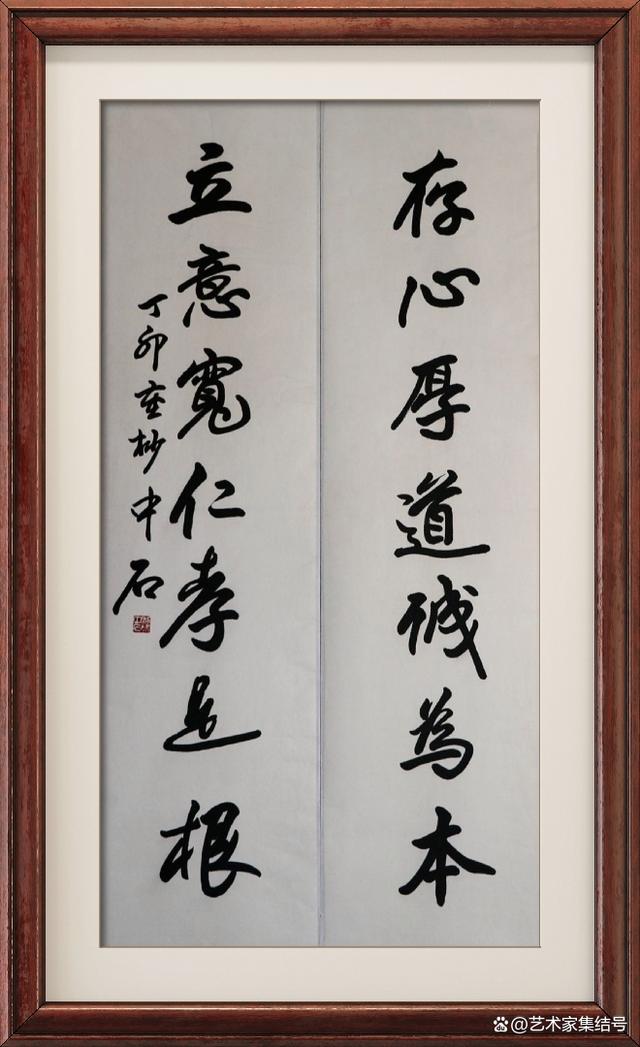 存心厚道诚為本
立意寬仁孝是根
丁卯
杪中石
@艺术家集结号